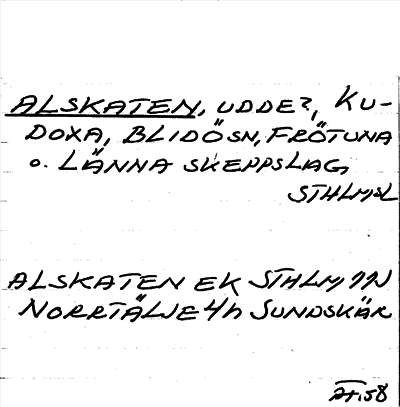 ALSKATEN, UDDE?, KU-
DOXA, BLIDÖ SN, FRÖTUNA
o. LÄNNA SKEPPSLAG,
STHLMS L
ALSKATEN EK STHLM
NORRTÄLJE 4h SUNDSKÄR
58